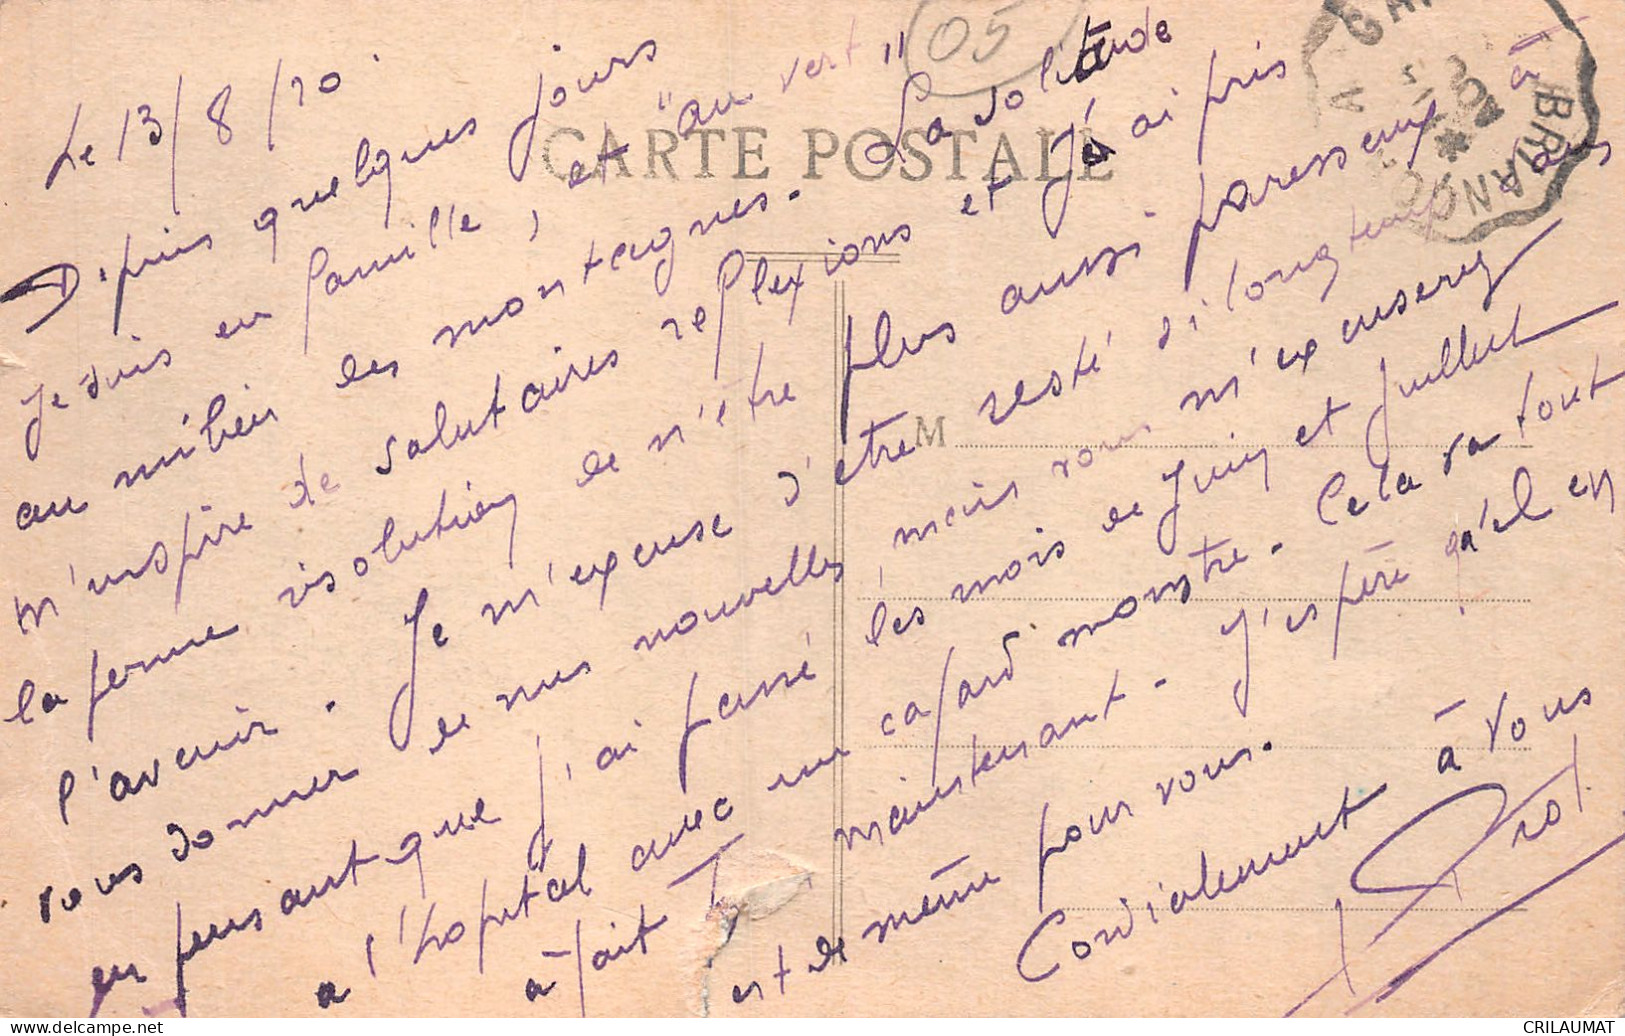 Le 13/8/20.
Depuis quelques jours
Je suis en famille, et "au vert"
au milieu des montagnes. La solitude
m'inspire de salutaires réflexions et j'ai pris
la ferme résolution de n'être plus aussi paresseux à
l'avenir. Je m'excuse d'être resté si longtemps sans
vous donner de mes nouvelles, mais vous m'excuserez
en pensant que j'ai passé les mois de Juin et Juillet
à l'hopital avec un cafard monstre. Cela va tout
à fait maintenant. J'espère qu'il en
est de même pour vous.
Cordialement à vous
CARTE POSTALE
M
05
GAP
A
BRIANÇON
CRILAUMAT